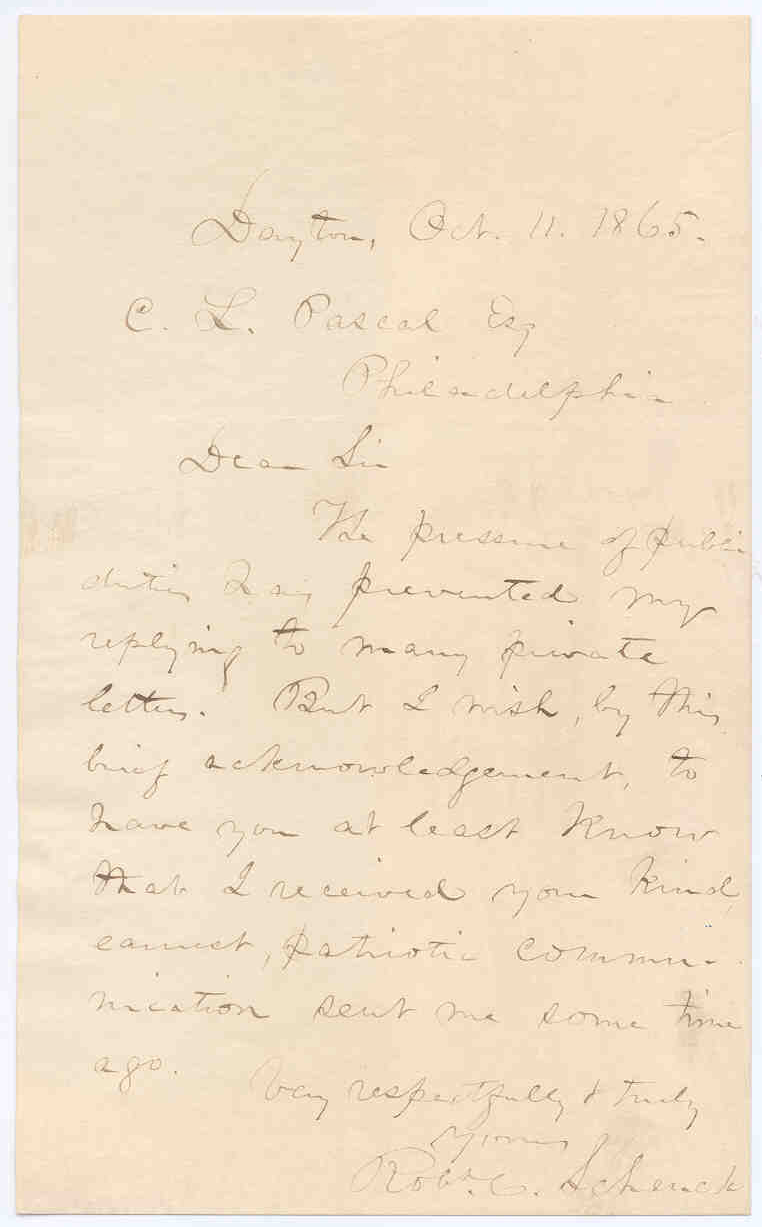 Dayton, Oct. 11. 1865.
C. L. Pascal Esq
Philadelphia
Dear Sir
The pressure of public
duties has prevented my
replying to many private
letters. But I wish, by this
brief acknowledgement, to
have you at least know
that I received your kind,
earnest, patriotic commu-
nication sent me some time
ago.
Very respectfully & truly
yours
Robt. C. Schenck